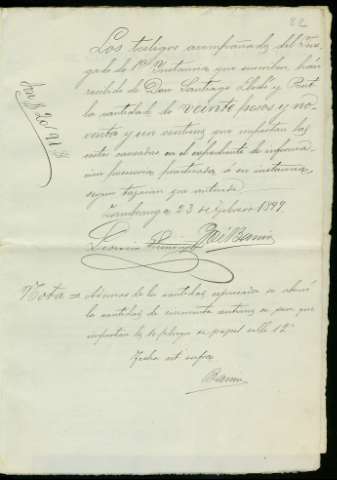 82
Los testigos acompañados del Juz-
gado de 1ª Instancia que suscriben han
recibido de Don Santiago Lladó y
la cantidad de veinte pesos y no-
venta y un centimos que importan las
costas causadas en el expediente de informa-
cion posesoria practicada á su instancia,
segun tasacion que antecede
Zamboanga 23 de Febrero 1897.
Son $ 20'91
Nota = Ademas de la cantidad expresada se abonó
la cantidad de cincuenta centimos de peso que
importan de pliego de papel sello 12º
Fecha ut supra